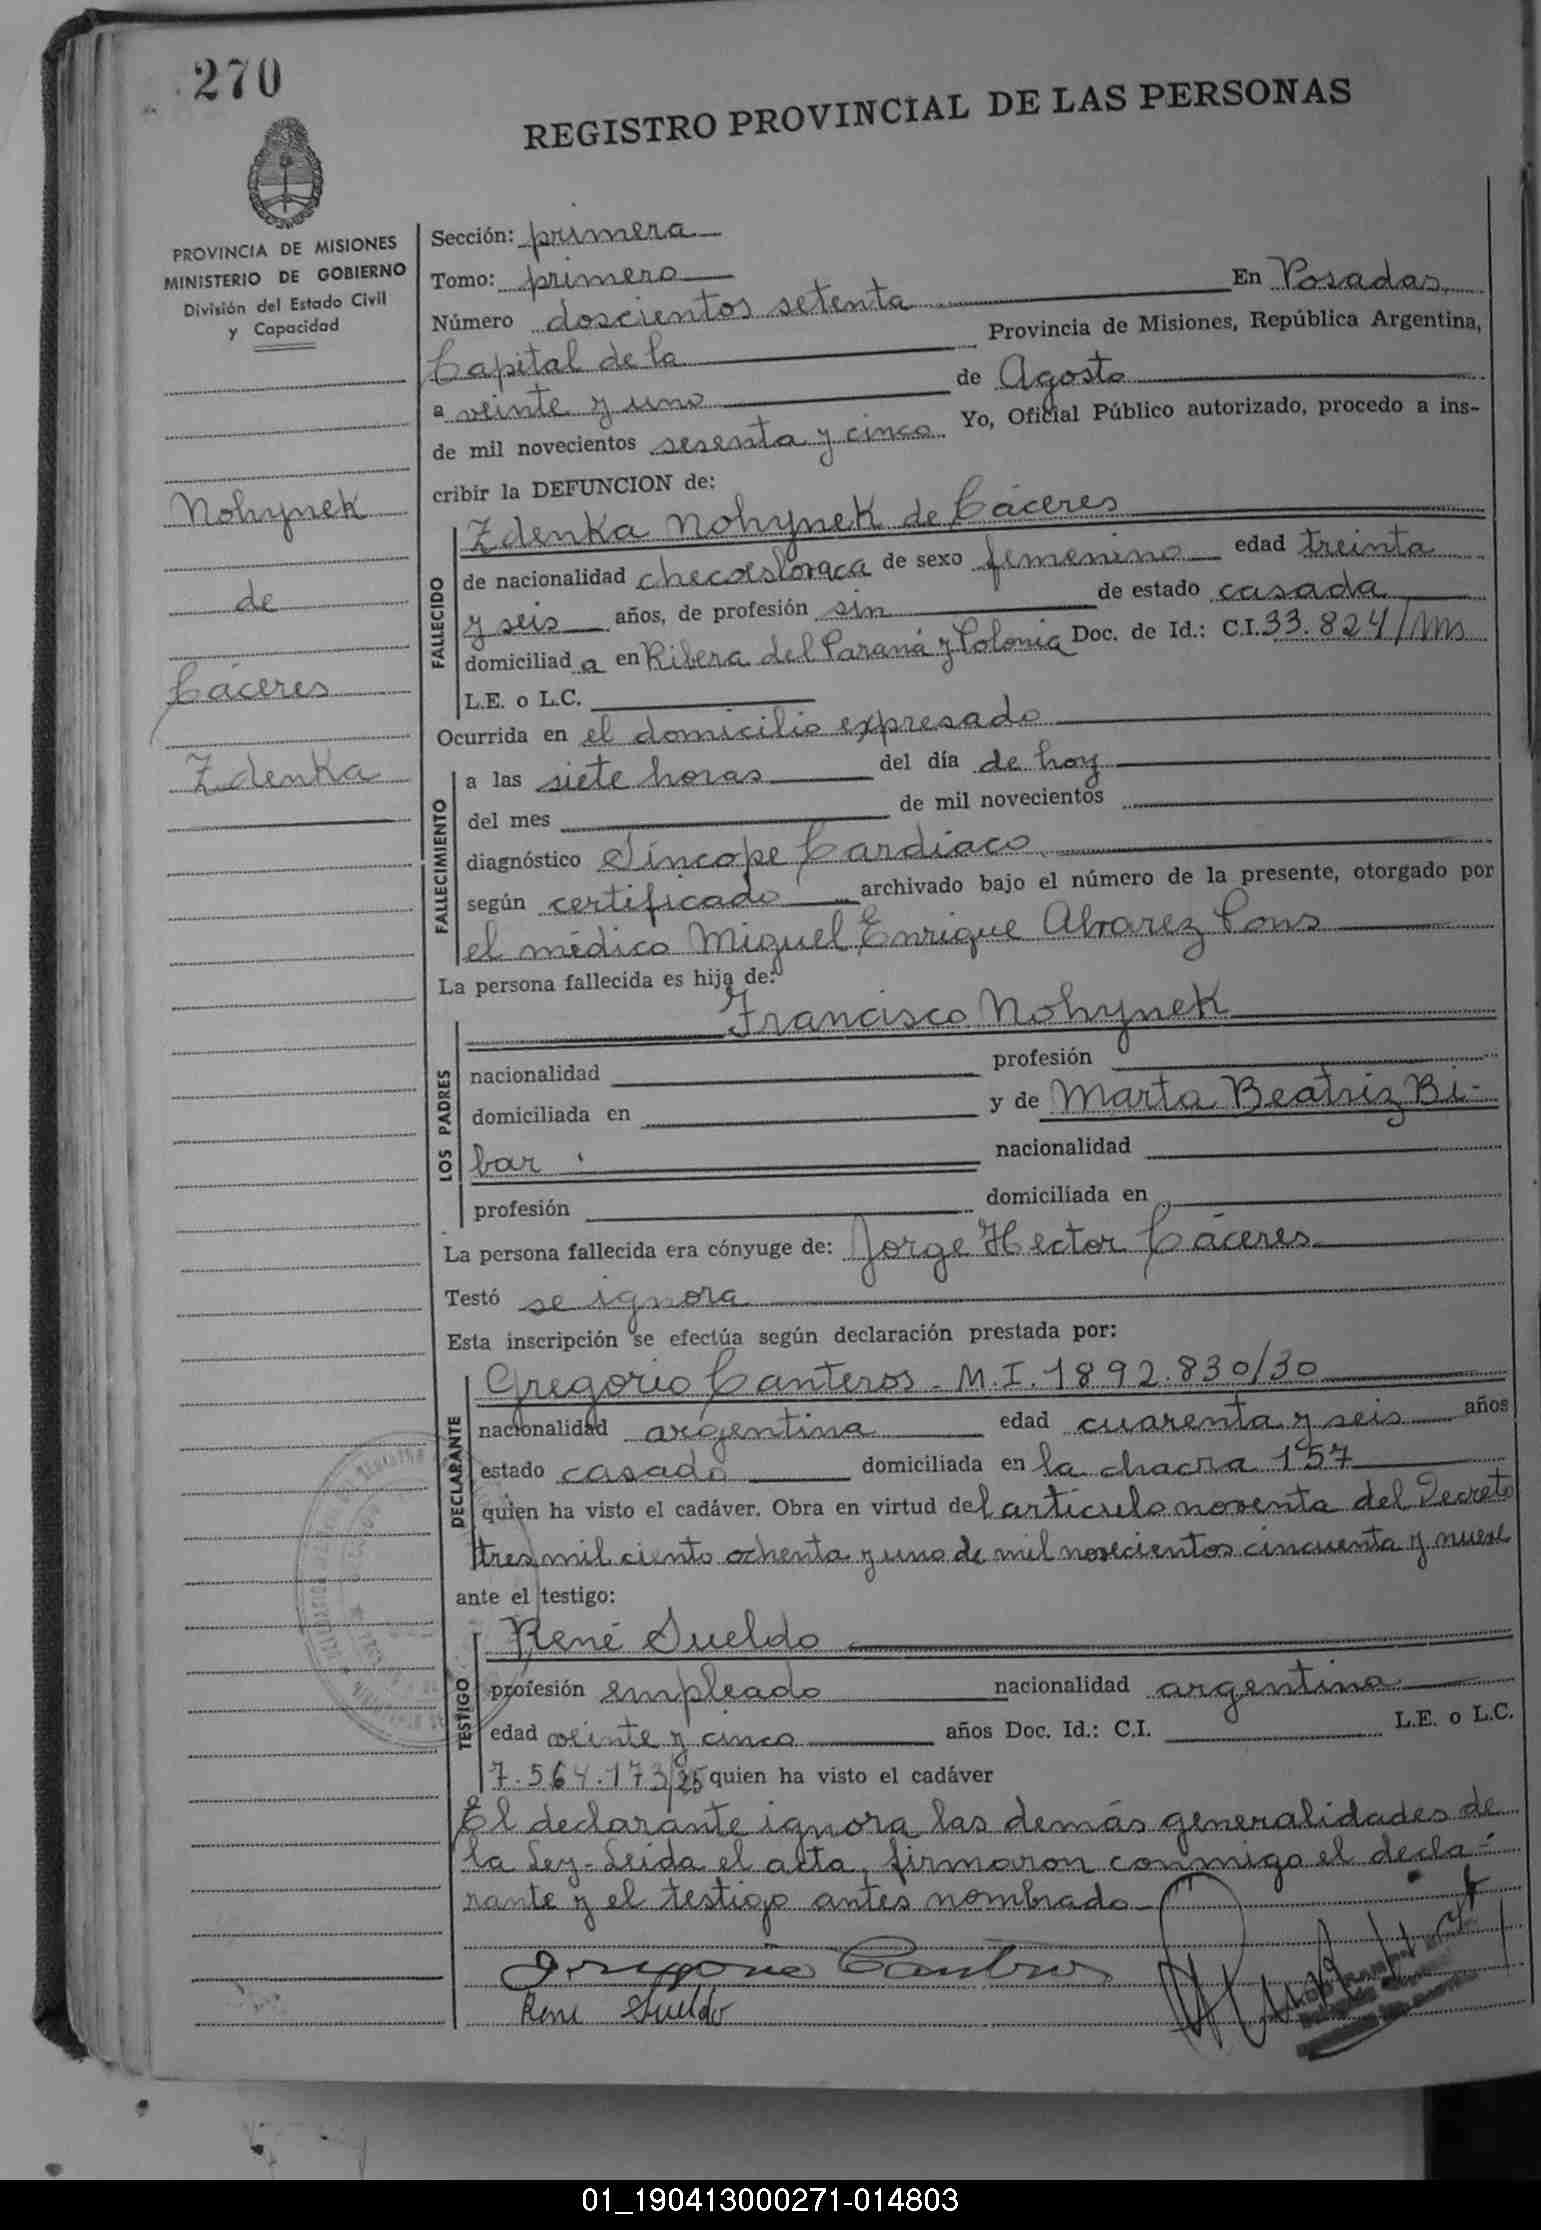 270
REGISTRO PROVINCIAL DE LAS PERSONAS
PROVINCIA DE MISIONES
MINISTERIO DE GOBIERNO
División del Estado Civil
y Capacidad
Nohynek
de
Cáceres
Zdenka
Sección: primera
Tomo: primero
Número doscientos setenta En Posadas,
Capital de la Provincia de Misiones, República Argentina,
a veinte y uno de Agosto
de mil novecientos sesenta y cinco Yo, Oficial Público autorizado, procedo a ins-
cribir la DEFUNCION de:
FALLECIDO
Zdenka Nohynek de Cáceres
de nacionalidad checoeslovaca de sexo femenino edad treinta
y seis años, de profesión sin de estado casada
domiciliad a en Ribera del Paraná y Polonia Doc. de Id.: C.I. 33.824/Ms
L.E. o L.C.
Ocurrida en el domicilio expresado
FALLECIMIENTO
a las siete horas del día de hoy
del mes de mil novecientos
diagnóstico Síncope Cardíaco
según certificado archivado bajo el número de la presente, otorgado por
el médico Miguel Enrique Alvarez Pons
La persona fallecida es hija de:
LOS PADRES
Francisco Nohynek
nacionalidad profesión
domiciliada en y de Marta Beatriz Bi-
bar
nacionalidad
profesión domiciliada en
La persona fallecida era cónyuge de: Jorge Hector Cáceres
Testó se ignora
Esta inscripción se efectúa según declaración prestada por:
DECLARANTE
Gregorio Canteros - M.I. 1892.830/30
nacionalidad argentina edad cuarenta y seis años
estado casado domiciliada en la chacra 157
quien ha visto el cadáver. Obra en virtud del artículo noventa del Decreto
tres mil ciento ochenta y uno de mil novecientos cincuenta y nueve
ante el testigo:
TESTIGO
René Sueldo
profesión empleado nacionalidad argentina
edad veinte y cinco años Doc. Id.: C.I. L.E. o L.C.
7.564.173/25 quien ha visto el cadáver
El declarante ignora las demás generalidades de
la Ley - Leida el acta, firmaron conmigo el decla-
rante y el testigo antes nombrado -
Gregorio Canteros
Rene Sueldo
01_190413000271-014803